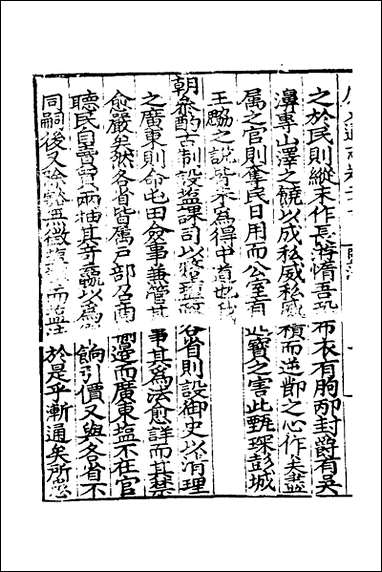 之於民則縱末作長游惰吾恐布衣有朐邴封爵有吳
濞專山澤之饒以成私威私威積而逆節之心作夫鹽
屬之官則奪民日用而公室有近寶之害此甄琛彭城
王勰之說皆不為得中道也我
朝參酌古制設鹽課司以各省則設御史以清理
之廣東則命屯田僉事兼管其事其為法愈詳而其禁
愈嚴矣然各省皆属戶部召商邊而廣東鹽不在官
聽民自賣買兩抽其羨以為餉引價又與各省不
同嗣後又而鹽法於是乎漸通矣所